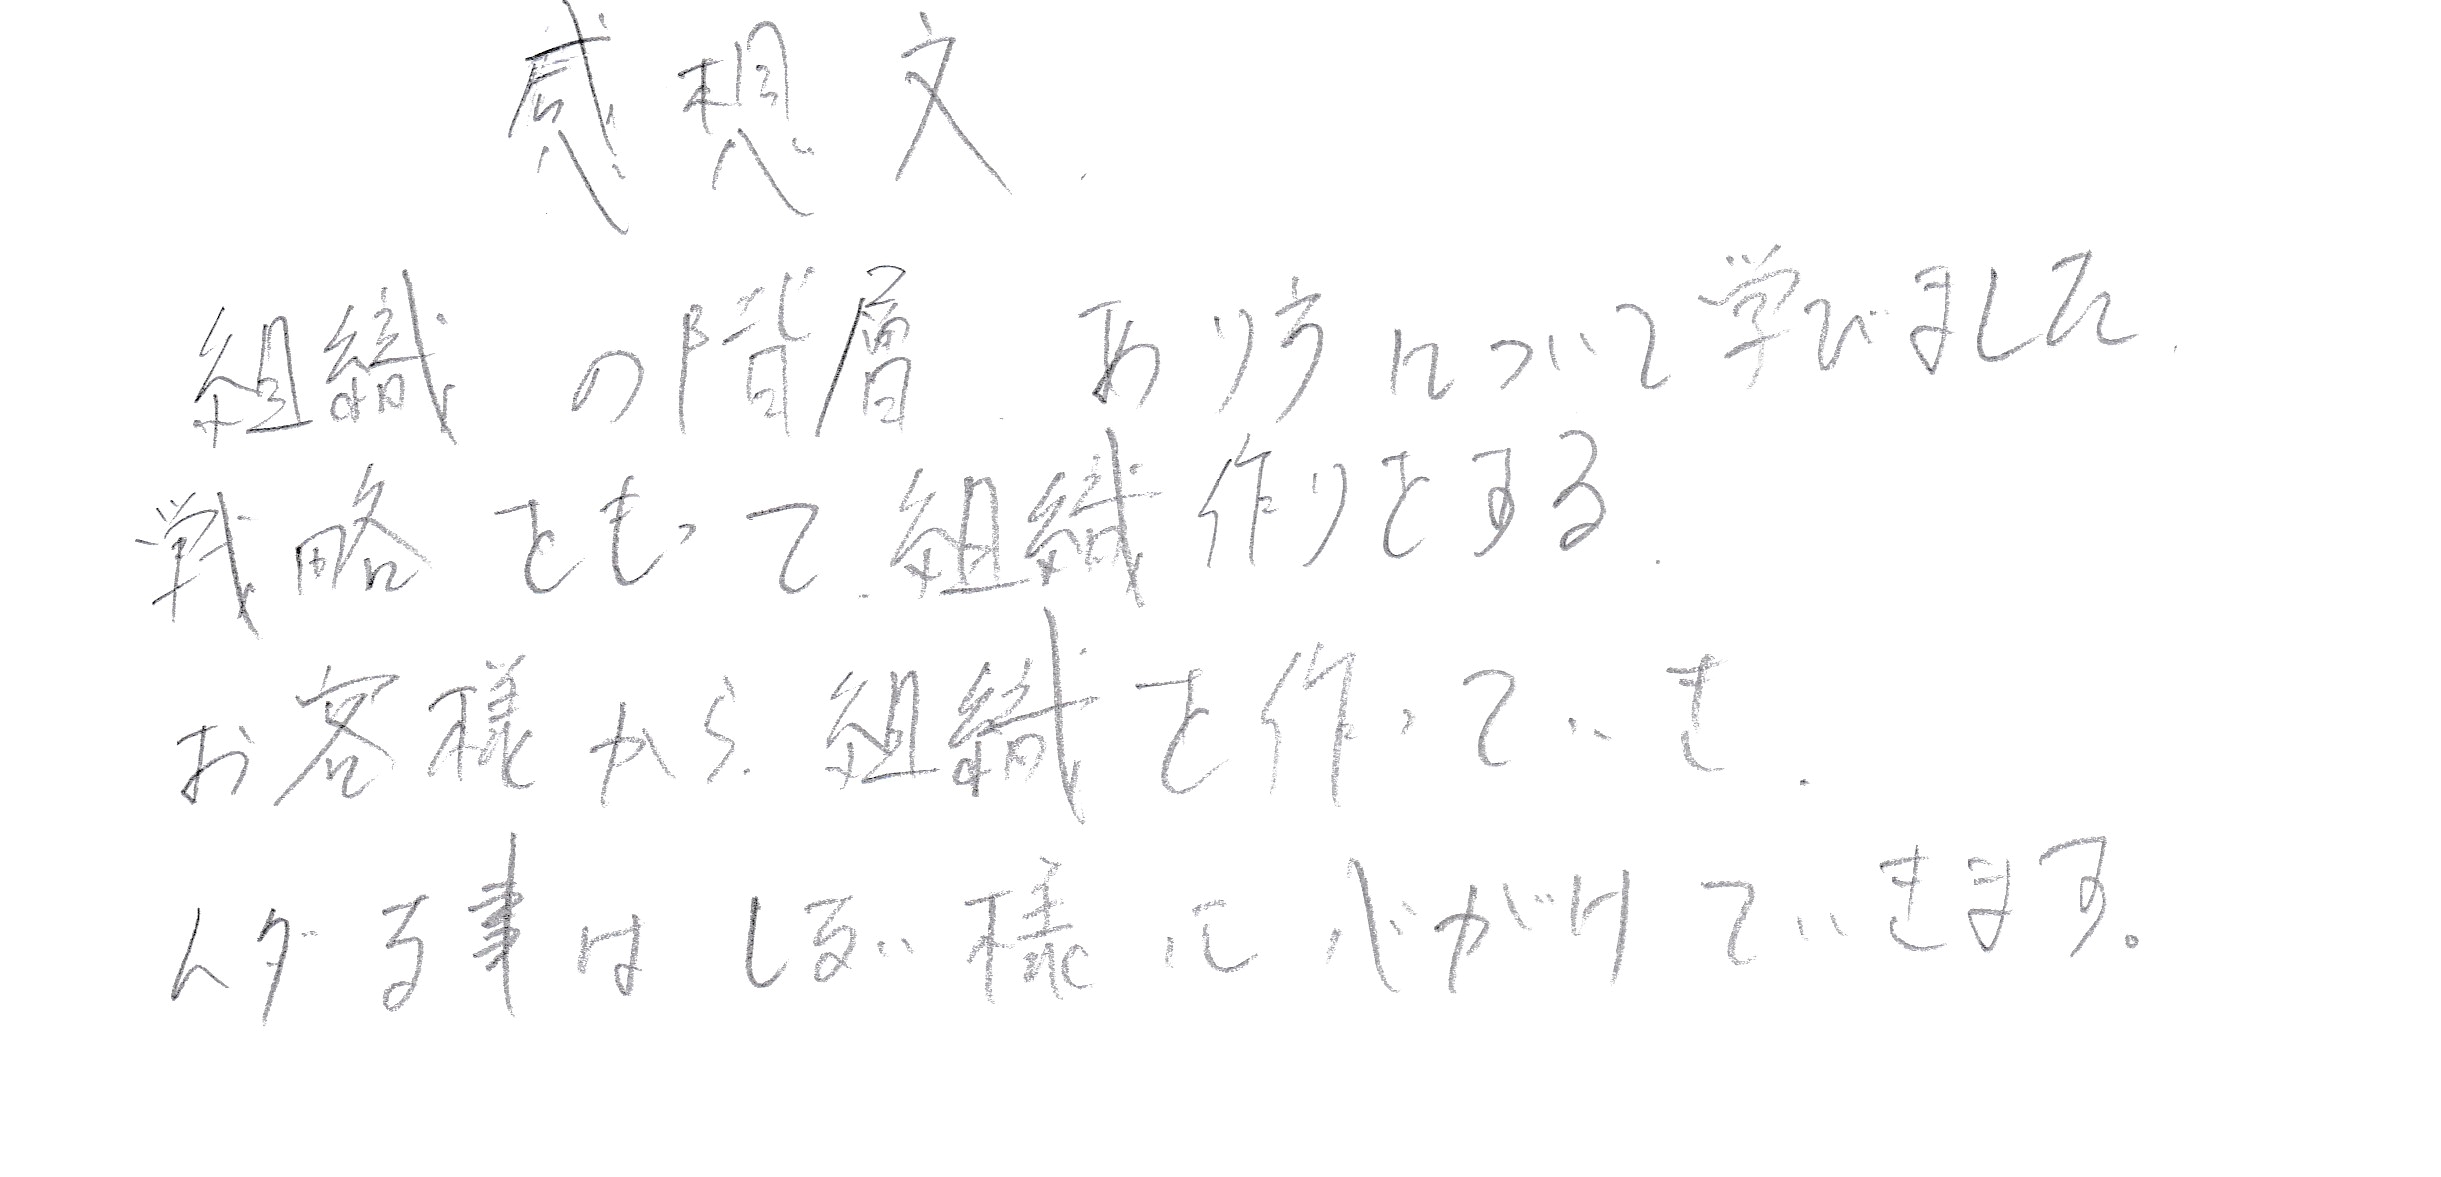 感想文.
組織の階層、あり方について学びました.
戦略をもって、組織作りをする.
お客様から、組織を作っていき.
ムダる事はしない様に心がけていきます。